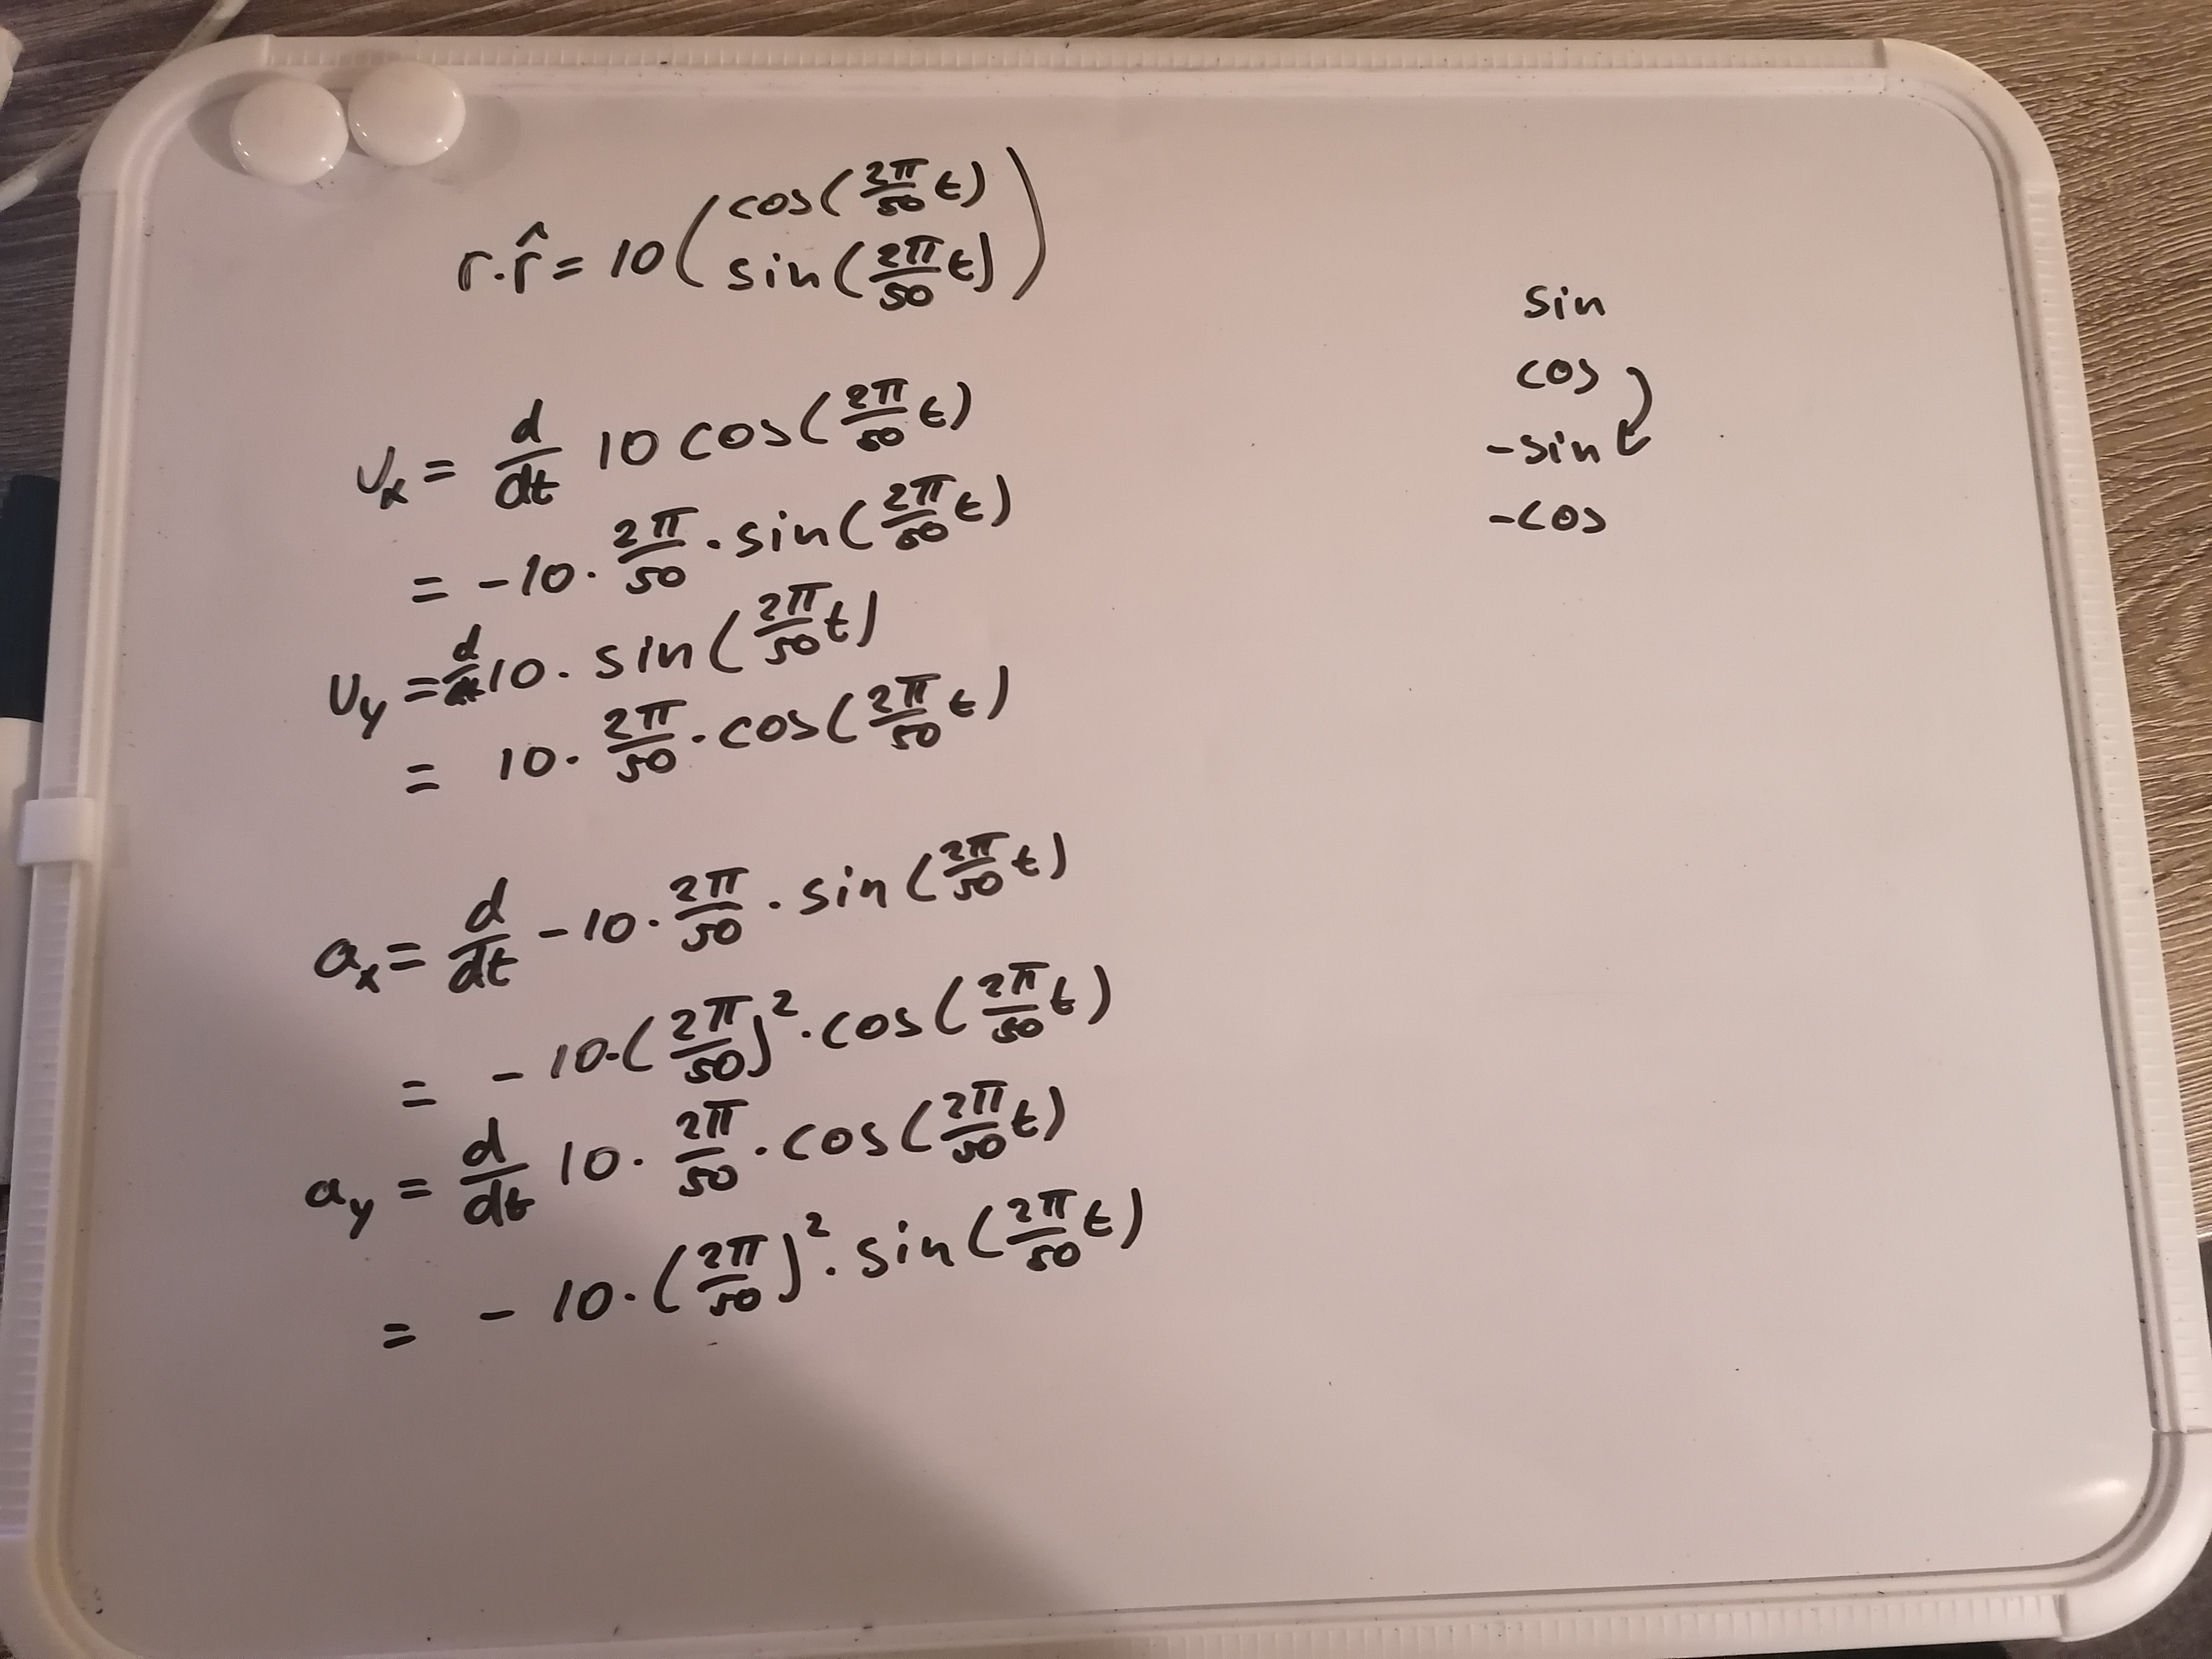 r·r̂ = 10 ( cos(2π/50 t)
sin(2π/50 t) )
υx = d/dt 10 cos(2π/50 t)
= -10 · 2π/50 · sin(2π/50 t)
υy = d/dt 10 · sin(2π/50 t)
= 10 · 2π/50 · cos(2π/50 t)
ax = d/dt -10 · 2π/50 · sin(2π/50 t)
= - 10 · (2π/50)² · cos(2π/50 t)
ay = d/dt 10 · 2π/50 · cos(2π/50 t)
= - 10 · (2π/50)² · sin(2π/50 t)
sin
cos
-sin
-cos